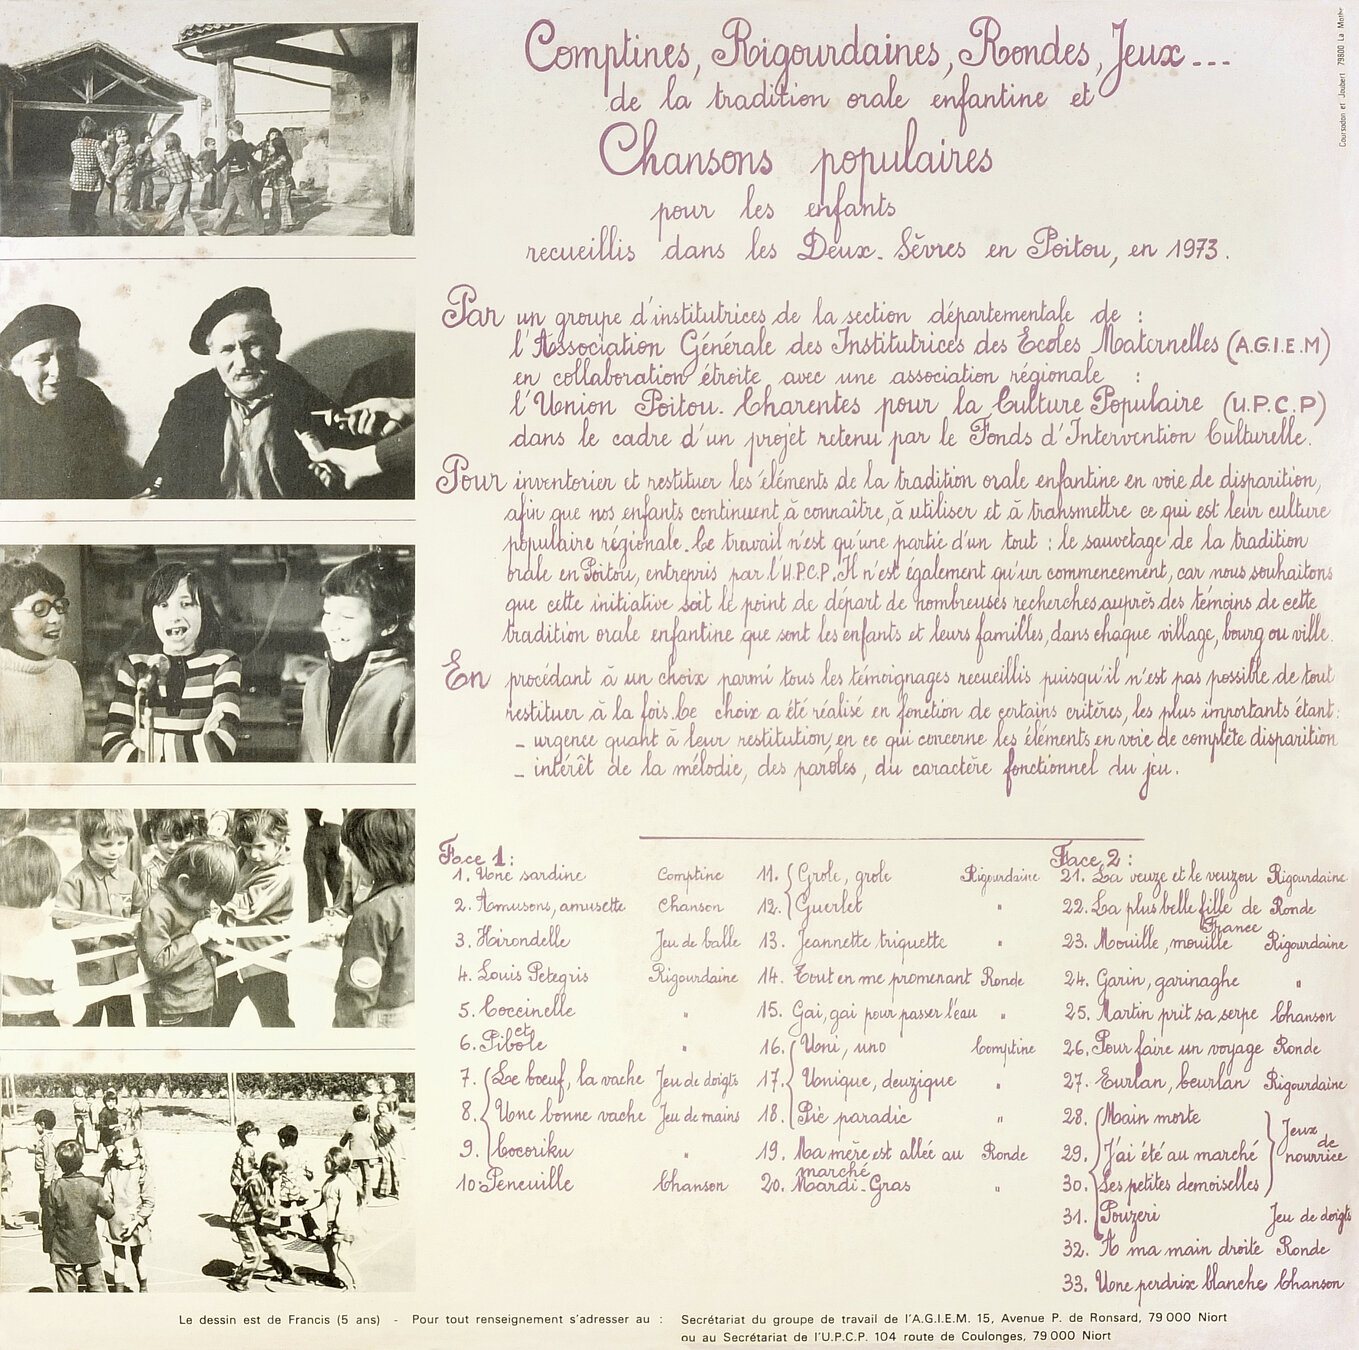 Comptines, Rigourdaines, Rondes, Jeux...
de la tradition orale enfantine et
Chansons populaires
pour les enfants
recueillis dans les Deux-Sèvres en Poitou, en 1973.
Par un groupe d'institutrices de la section départementale de :
l'Association Générale des Institutrices des Ecoles Maternelles (A.G.I.E.M)
en collaboration étroite avec une association régionale :
l'Union Poitou-Charentes pour la Culture Populaire (U.P.C.P)
dans le cadre d'un projet retenu par le Fonds d'Intervention Culturelle.
Pour inventorier et restituer les éléments de la tradition orale enfantine en voie de disparition,
afin que nos enfants continuent à connaître, à utiliser et à transmettre ce qui est leur culture
populaire régionale. Ce travail n'est qu'une partie d'un tout : le sauvetage de la tradition
orale en Poitou, entrepris par l'U.P.C.P. Il n'est également qu'un commencement, car nous souhaitons
que cette initiative soit le point de départ de nombreuses recherches auprès des témoins de cette
tradition orale enfantine que sont les enfants et leurs familles, dans chaque village, bourg ou ville.
En procédant à un choix parmi tous les témoignages recueillis puisqu'il n'est pas possible de tout
restituer à la fois. Ce choix a été réalisé en fonction de certains critères, les plus importants étant:
- urgence quant à leur restitution, en ce qui concerne les éléments en voie de complète disparition
- intérêt de la mélodie, des paroles, du caractère fonctionnel du jeu.
Face 1:
1. Une sardine Comptine
2. Amusons, amusette Chanson
3. Hirondelle Jeu de balle
4. Louis Petegris Rigourdaine
5. Coccinelle "
et
6. Pibole "
7. Le bœuf, la vache Jeu de doigts
8. Une bonne vache Jeu de mains
9. Cocoriku "
10. Peneuille Chanson
11. Grole, grole Rigourdaine
12. Guerlet "
13. Jeannette triquette "
14. Tout en me promenant Ronde
15. Gai, gai pour passer l'eau "
16. Uni, uno Comptine
17. Unique, deuzique "
18. Pié paradic "
19. Ma mère est allée au marché Ronde
20. Mardi-Gras "
Face 2:
21. La veuze et le veuzou Rigourdaine
22. La plus belle fille de France Ronde
23. Mouille, mouille Rigourdaine
24. Garin, garinaghe "
25. Martin prit sa serpe Chanson
26. Pour faire un voyage Ronde
27. Eurlan, beurlan Rigourdaine
28. Main morte
29. J'ai été au marché
30. Les petites demoiselles
Jeux de nourrice
31. Pouzeri Jeu de doigts
32. A ma main droite Ronde
33. Une perdrix blanche Chanson
Le dessin est de Francis (5 ans) - Pour tout renseignement s'adresser au : Secrétariat du groupe de travail de l'A.G.I.E.M. 15, Avenue P. de Ronsard, 79000 Niort
ou au Secrétariat de l'U.P.C.P. 104 route de Coulonges, 79000 Niort
Coursodon et Joubert 79800 La Mothe